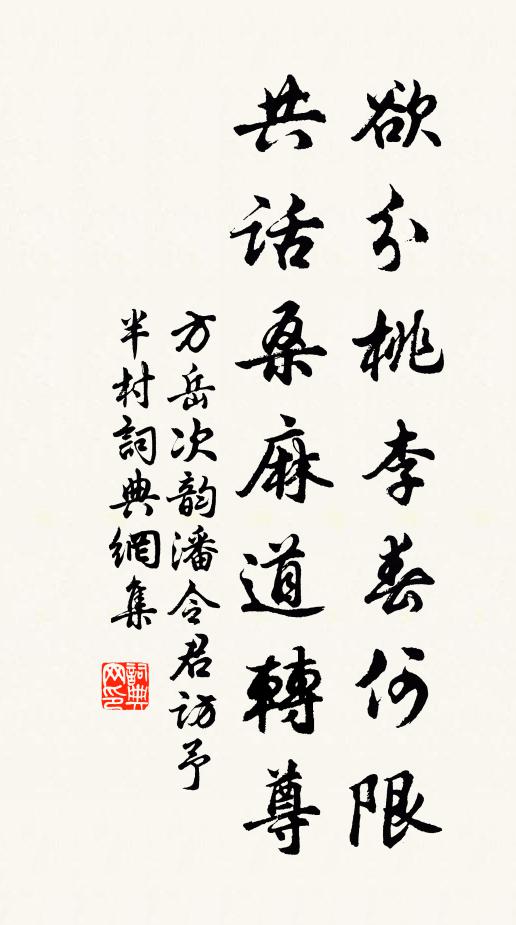 欲分桃李春何限
共话桑麻道轉尊
方岳次韵潘令君访予
半村詞典網集
詞典网印